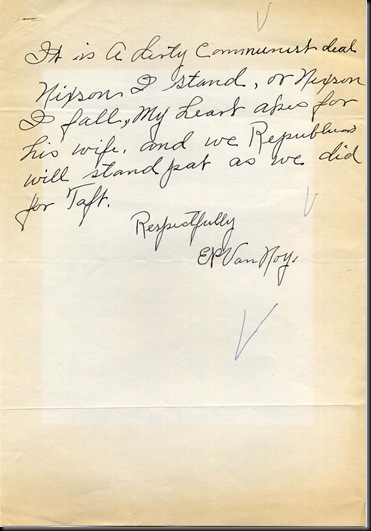 It is A dirty Communist deal
Nixson I stand, or Nixson
I fall, My heart akes for
his wife, and we Republicans
will stand pat as we did
for Taft.
Respectfully
EP Van Noys